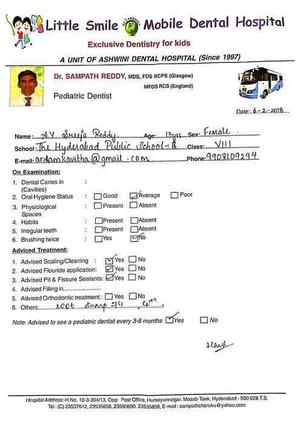 Little Smile Mobile Dental Hospital
Exclusive Dentistry for kids
A UNIT OF ASHWINI DENTAL HOSPITAL (Since 1997)
Dr. SAMPATH REDDY, MDS, FDS RCPS (Glasgow)
MFDS RCS (England)
Pediatric Dentist
Date: 6-2-2018
Name: A.V Sreeja Reddy Age: 13yrs Sex: Female
School: The Hyderabad Public School-B Class: VIII
E-mail: ardamkavitha@gmail.com Phone: 9908109294
On Examination:
1. Dental Caries in :
(Cavities)
2. Oral Hygiene Status : Good Average Poor
3. Physiological : Present Absent
Spaces
4. Habits : Present Absent
5. Irregular teeth : Present Absent
6. Brushing twice : Yes No
Adviced Treatment:
1. Advised Scaling/Cleaning : Yes No
2. Advised Flouride application: Yes No
3. Advised Pit & Fissure Sealants: Yes No
4. Advised Filling in
5. Advised Orthodontic treatment : Yes No
6. Others: root stump 74
Note: Advised to see a pediatric dentist every 3-6 months Yes No
Hospital Address: H.No. 10-3-304/13, Opp: Post Office, Humayunnagar, Masab Tank, Hyderabad - 500 028 T.S.
Tel: (C) 23537612, 23535656, 23590690, 23535858, E-mail : sampathcheruku@yahoo.com